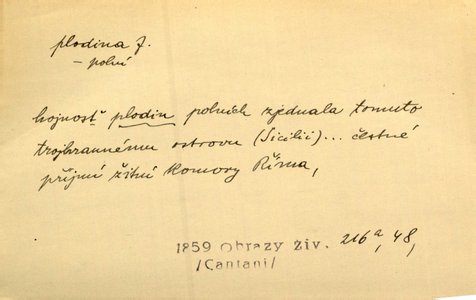 plodina f.
– polní
hojnosť plodin polních zjednala tomuto
trojhrannému ostrovu (Sicilii)... čestné
příjmí žitní komory Říma,
1859 Obrazy živ. 216a, 48,
/Cantani/